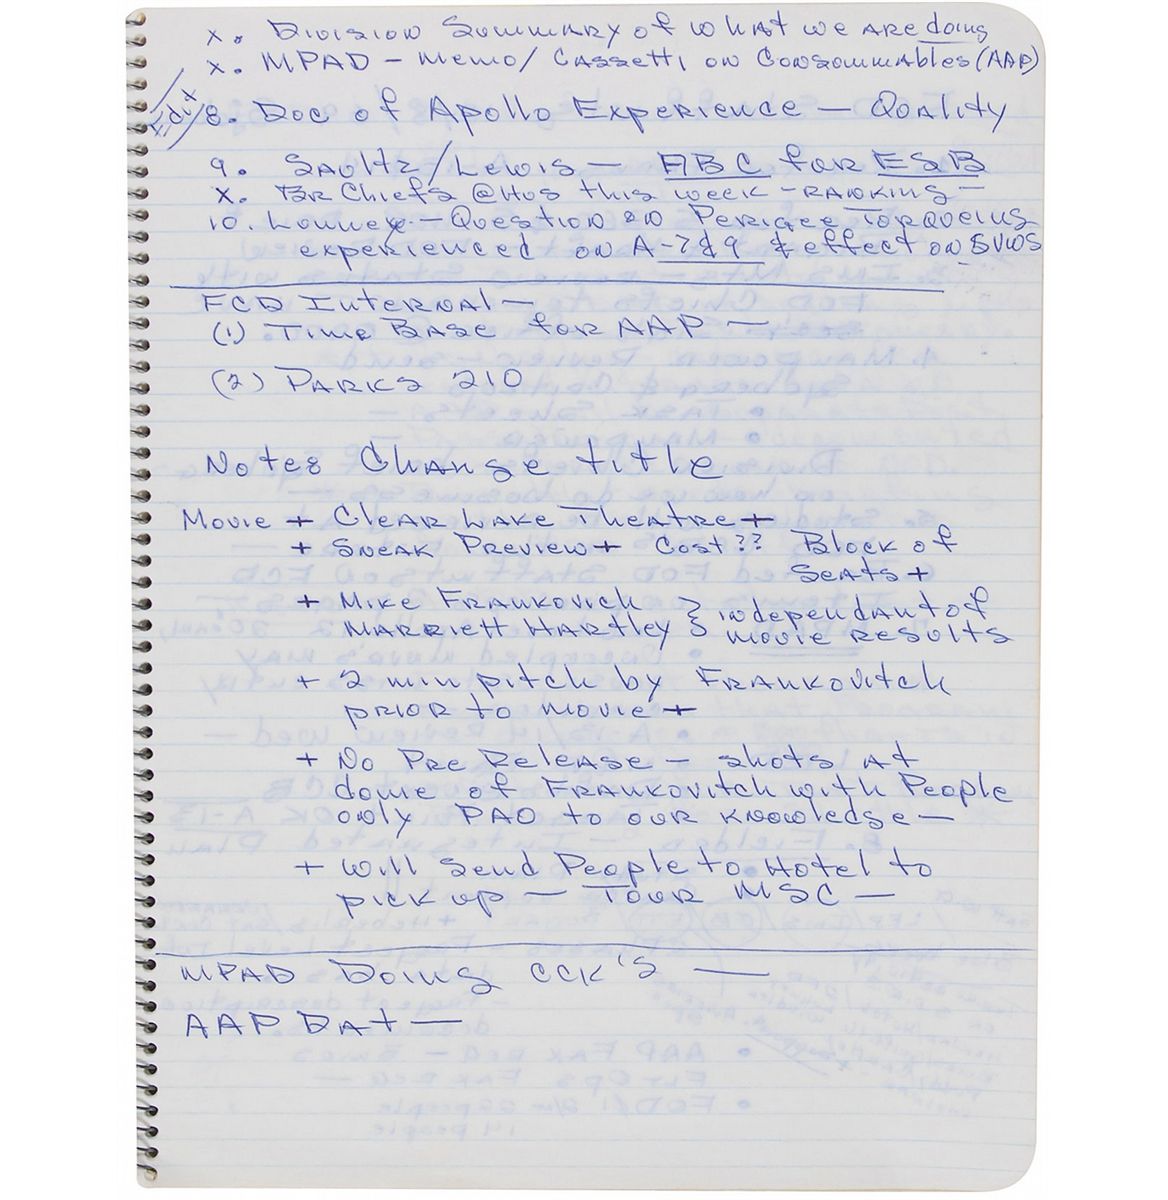 x. Division Summary of what we are doing
x. MPAD - Memo/Cassetti on Consommables (AAP)
Edit x
8. Doc of Apollo Experience — Quality
9. Saultz/Lewis — ABC for ESB
x. Br Chiefs @ Hqs this week - ranking -
10. Lunney - Question on Perigee Torqueing
experienced on A-7&9 & effect on SVWS
FCD Internal —
(1) Time Base for AAP —
(2) Parks 210
Notes Change title
Movie + Clear Lake Theatre +
+ Sneak Preview + Cost?? Block of
Seats +
+ Mike Frankovich } independant of
Marriett Hartley } movie results
+ 2 min pitch by Frankovitch
prior to movie +
+ No Pre Release - shots at
dome of Frankovitch with People
only PAO to our knowledge —
+ Will Send People to Hotel to
pick up — Tour MSC —
MPAD Doing CCK's —
AAP Dat —